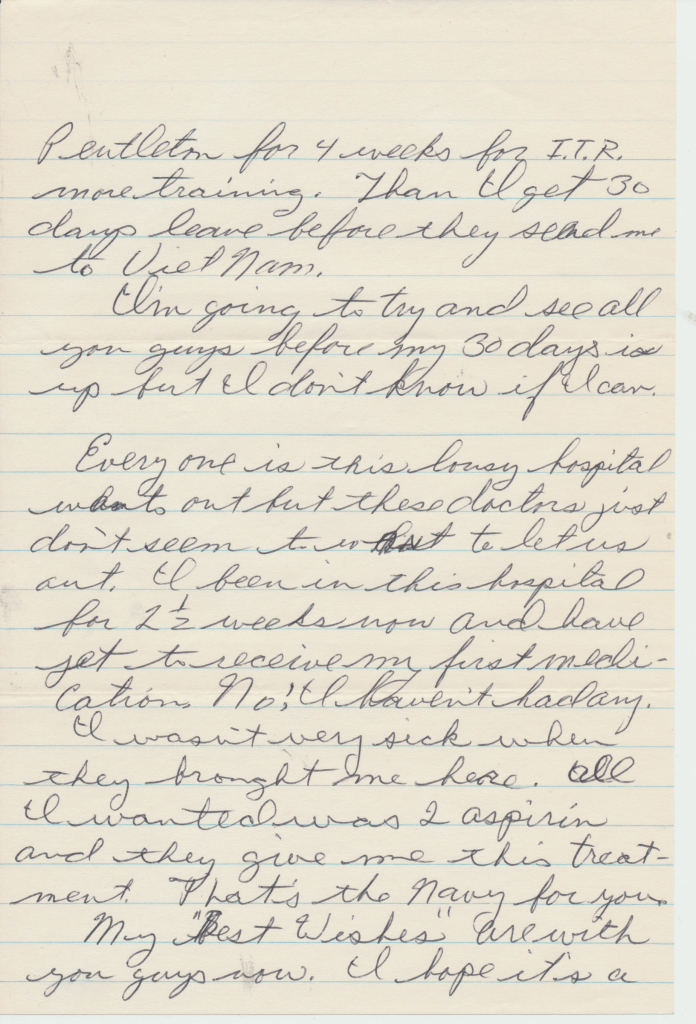 Pentleton for 4 weeks for I.T.R.
more training. Than I get 30
days leave before they send me
to Viet Nam.
I'm going to try and see all
you guys before my 30 days is
up but I don't know if I can.
Every one is this lousy hospital
wants out but these doctors just
don't seem to want to let us
out. I been in this hospital
for 2 ½ weeks now and have
yet to receive my first medi-
cation. No! I haven't had any.
I wasn't very sick when
they brought me here. All
I wanted was 2 aspirin
and they give me this treat-
ment. That's the Navy for you.
My "Best Wishes" are with
you guys now. I hope it's a